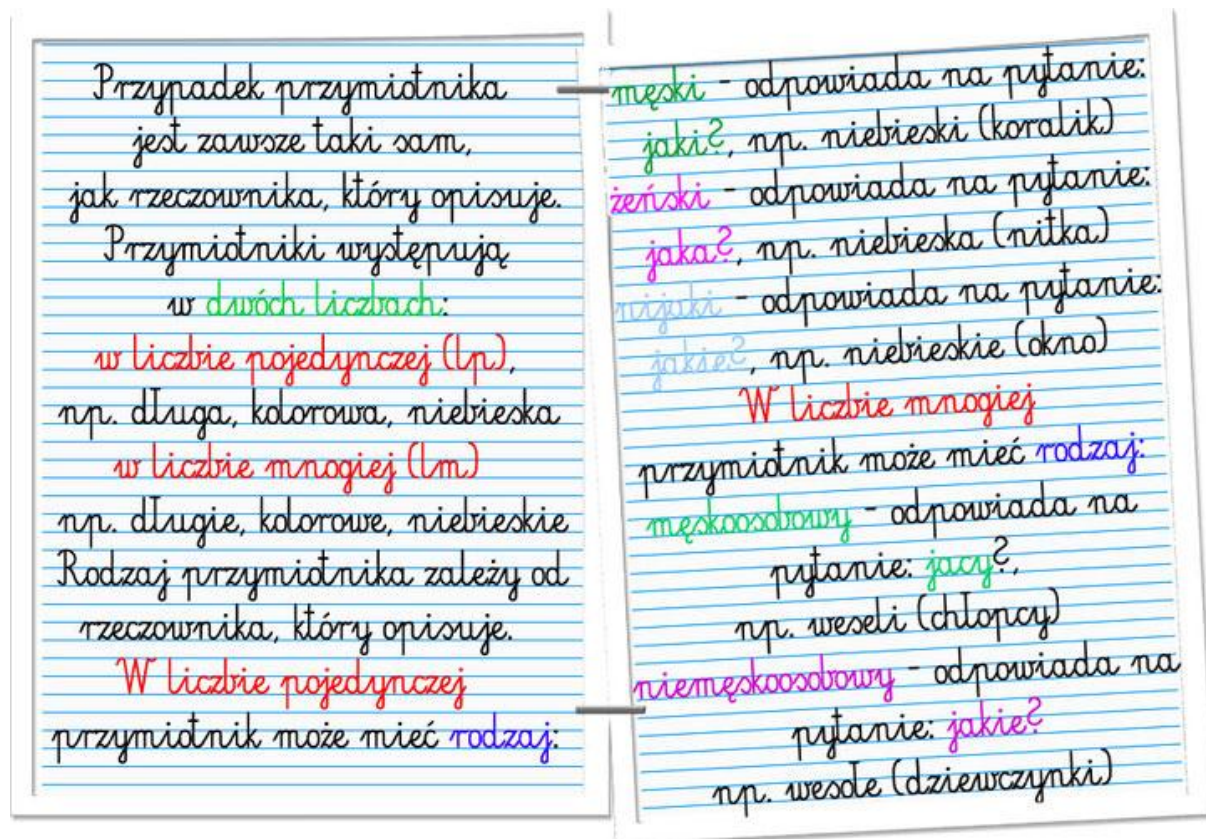 Przypadek przymiotnika
jest zawsze taki sam,
jak rzeczownika, który opisuje.
Przymiotniki występują
w dwóch liczbach:
w liczbie pojedynczej (lp),
np. długa, kolorowa, niebieska
w liczbie mnogiej (lm)
np. długie, kolorowe, niebieskie
Rodzaj przymiotnika zależy od
rzeczownika, który opisuje.
W liczbie pojedynczej
przymiotnik może mieć rodzaj:
męski - odpowiada na pytanie:
jaki?, np. niebieski (koralik)
żeński - odpowiada na pytanie:
jaka?, np. niebieska (nitka)
nijaki - odpowiada na pytanie:
jakie?, np. niebieskie (okno)
W liczbie mnogiej
przymiotnik może mieć rodzaj:
męskoosobowy - odpowiada na
pytanie: jacy?,
np. weseli (chłopcy)
niemęskoosobowy - odpowiada na
pytanie: jakie?
np. wesołe (dziewczynki)